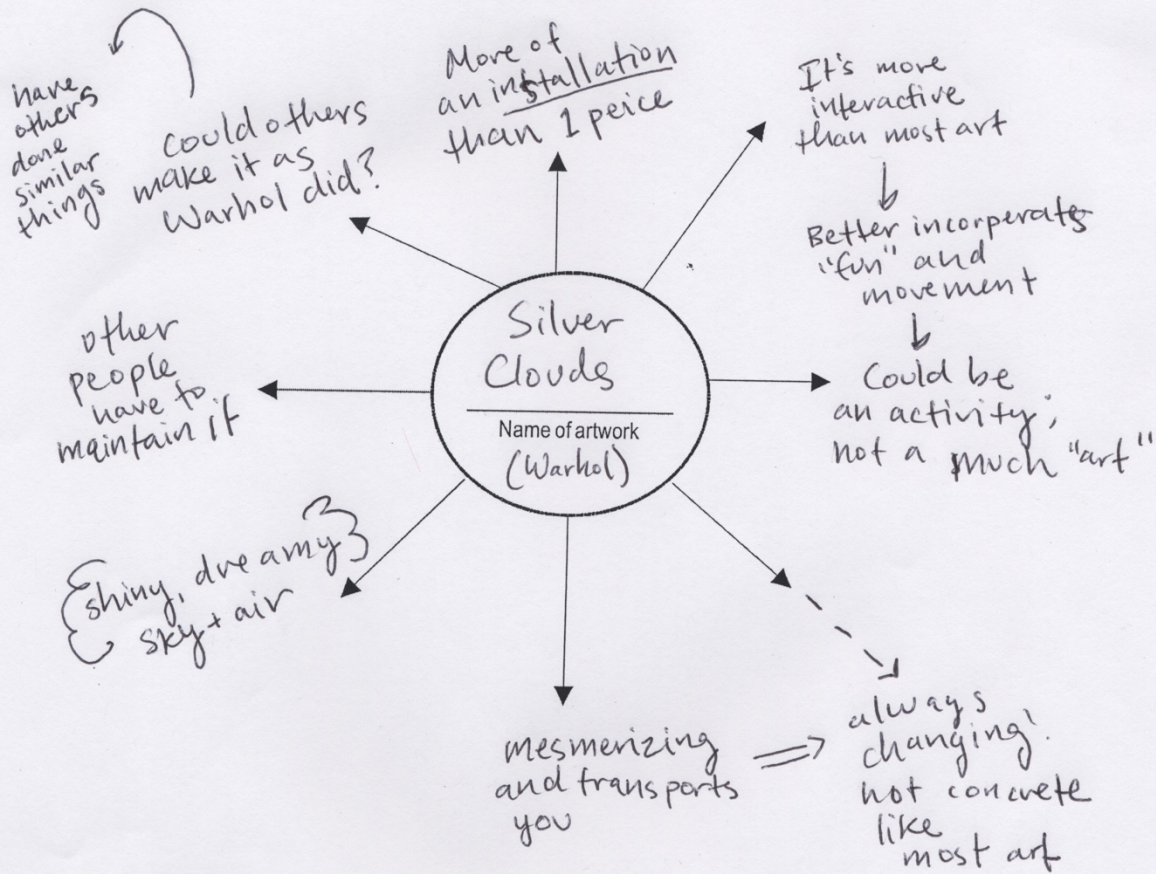 have
others
done
similar
things
could others
make it as
Warhol did?
More of
an installation
than 1 peice
It's more
interactive
than most art
Better incorperates
"fun" and
movement
Could be
an activity,
not a much "art"
Silver
Clouds
Name of artwork
(Warhol)
other
people
have to
maintain it
shiny, dreamy
sky + air
mesmerizing
and transports
you
always
changing!
not concrete
like
most art